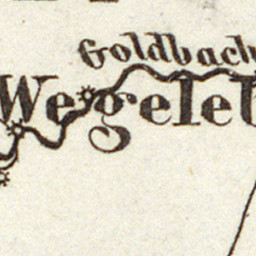 Goldbach
Wegeleb